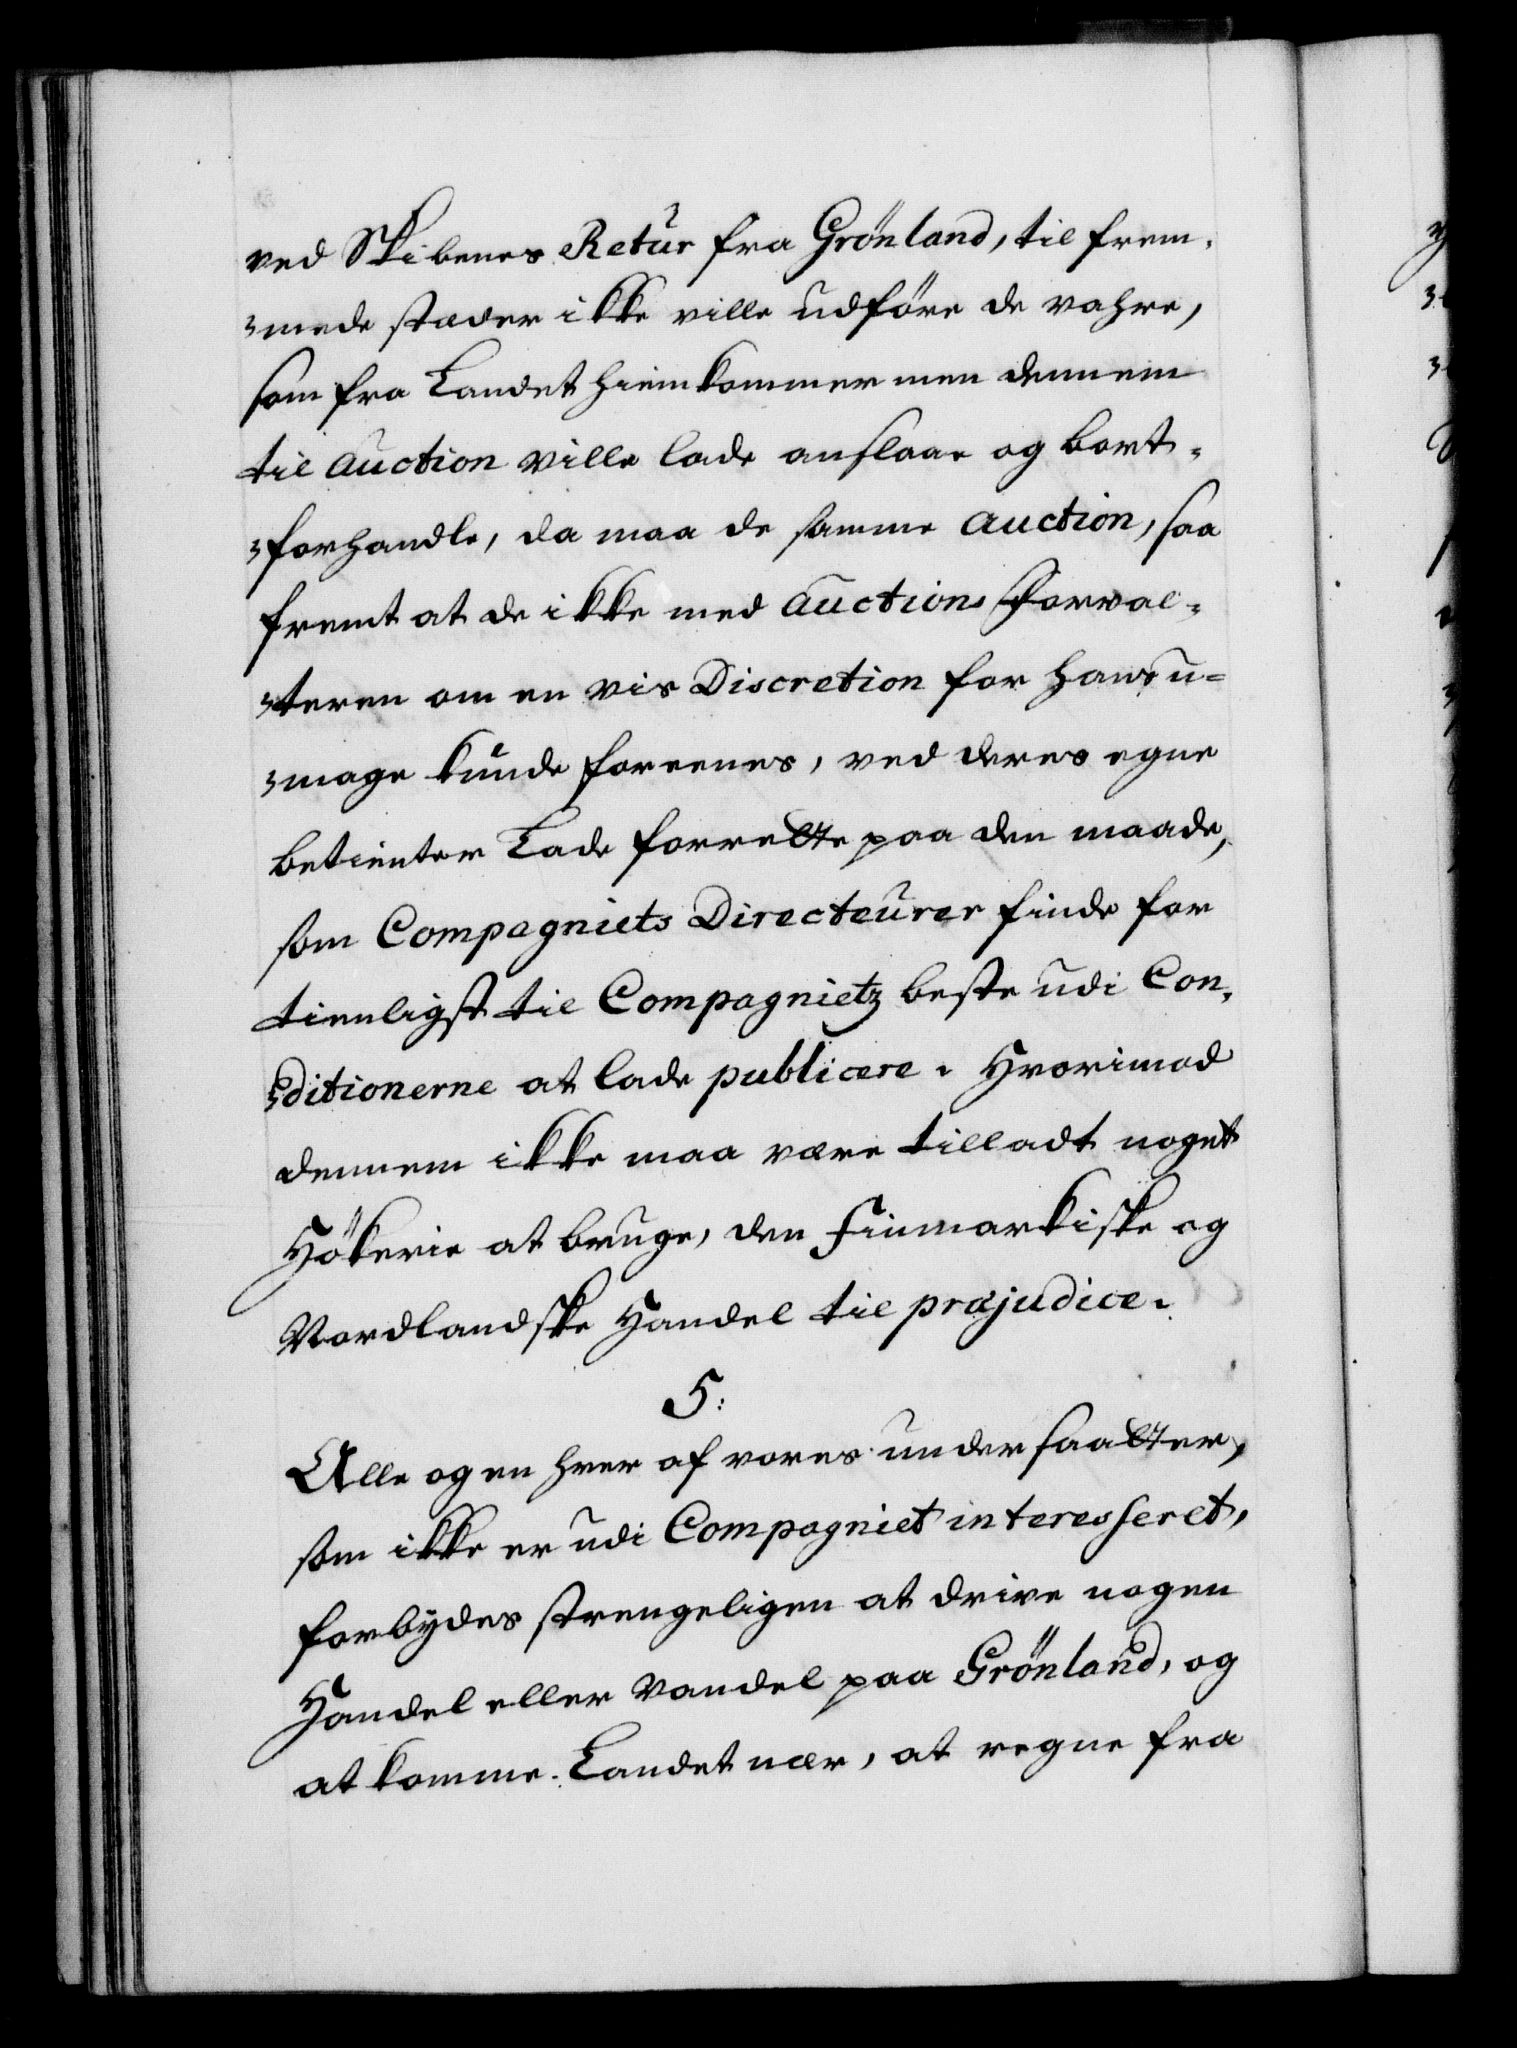 ved Skibenes Retur fra Grönland, til frem-
mede stæder ikke ville udföre de vahre,
som fra Landet hiemkommer men dennem
til Auction ville lade anslaae og bort-
forhandle, da maa de samme Auction, saa
fremt at de ikke med Auctions Forval-
teren om en vis Discretion for hans u-
mage kunde foreenes, ved deres egne
betienter Lade forrette paa den maade,
som Compagniets Directeurer finde for
tienligst til Compagnietz beste udi Con-
ditionerne at lade publicere. Hvorimod
dennem ikke maa være tilladt noget
Hökerie at bruge, den Finmarkiske og
Nordlandske Handel til præjudice.
5:
Alle og en hver af vores undersaatter,
som ikke er udi Compagniet interesseret,
forbydes strengeligen at drive nogen
Handel eller Vandel paa Grönland, og
at komme Landet nær, at regne fra